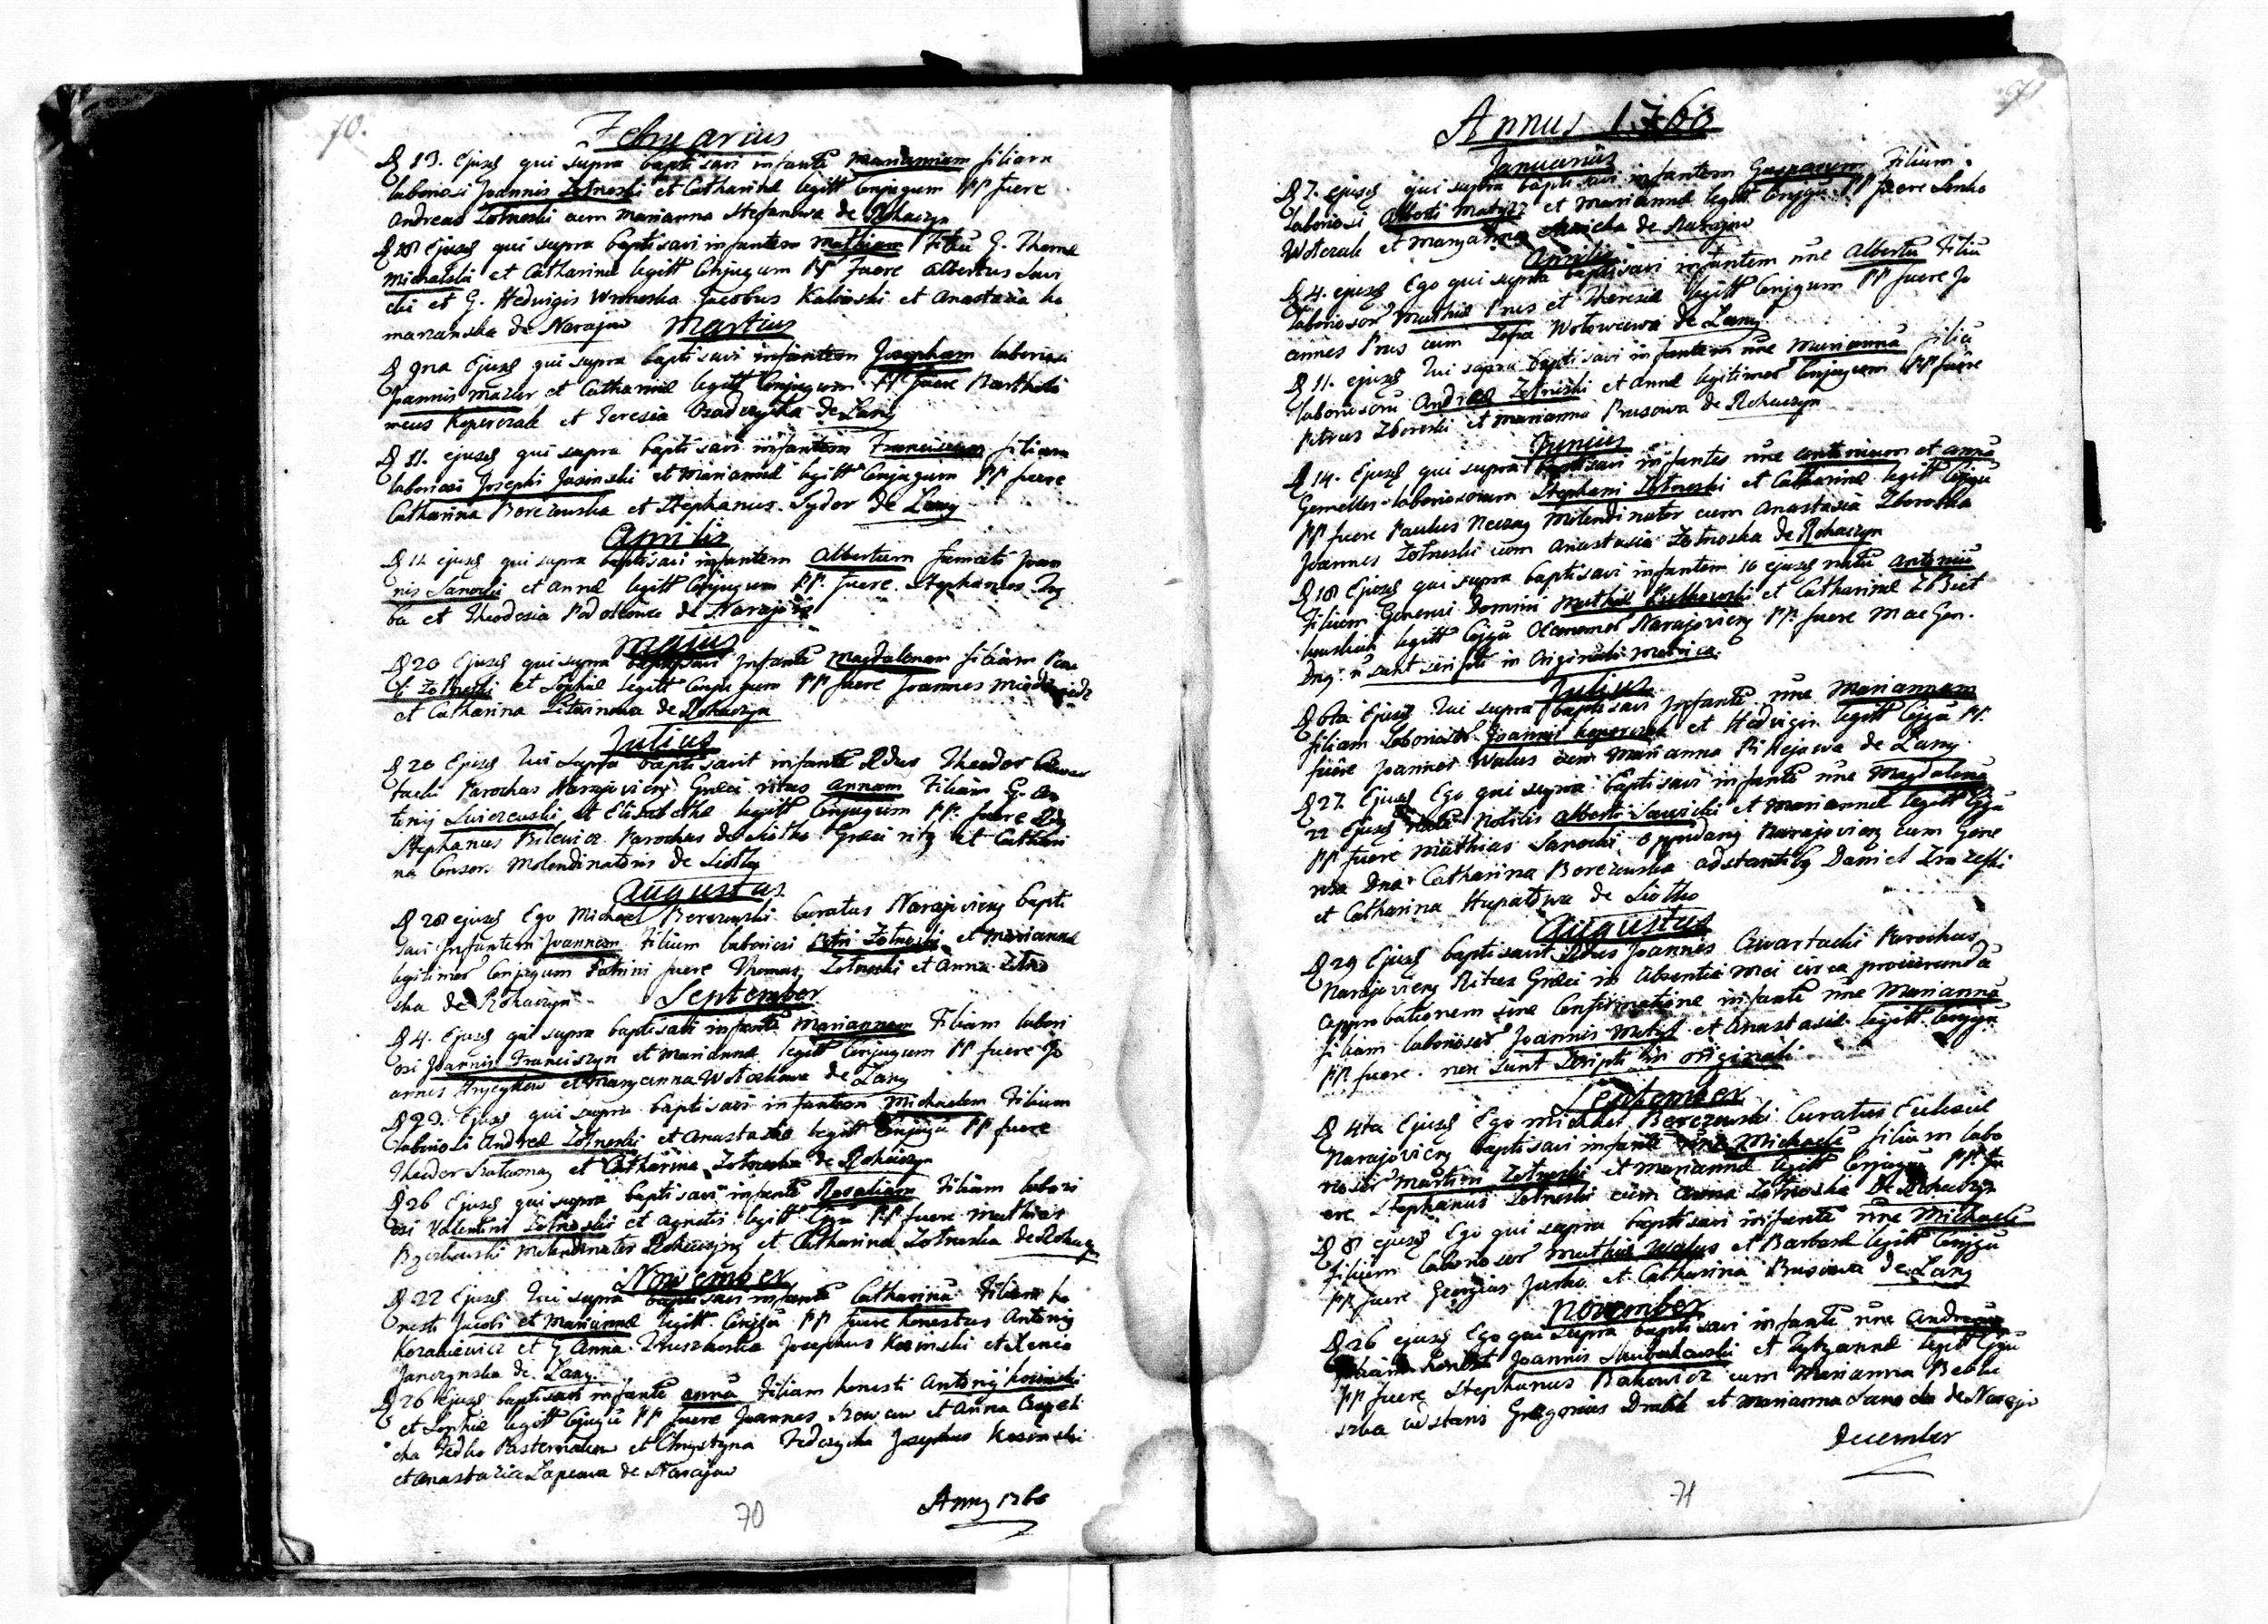 70.
Februarius
D 13. Ejusq qui supra baptisavi infante Mariannam filiam
laboriosi Joannis Zotnoski et Catharinæ legitt Conjugum PP fuere
Andreas Zotnoski cum Marianna Stefanowa de Rohaczyn
D 28 Ejusq qui supra baptisavi infantem Mathiam Filiu G. Thomæ
Michalski et Catharinæ legitt Conjugum PP fuere Albertus Savi
cki et G. Hedvigis Wronoska Jacobus Kalinski et Anastazia ko
marzanska de Narajow Martius
D 9na Ejusq qui supra baptisavi infantem Josepham laboriosi
Joannis Mazur et Catharinæ legitt Conjugum PP fuere Bartholo
meus Kxperczak et Teresia Osadczycha de Lany
D 11. ejusq qui supra baptisavi infantem Franciscam filiam
laboriosi Josephi Jasinski et Mariannæ legitt Conjugum PP fuere
Catharina Berezowska et Stephanus Sydor de Lany
Aprilis
D 12 ejusq qui supra baptisavi infantem Albertum famati Joan
nis Sanocki et Annæ legitt Conjugum PP. fuere Stephanus
ba et Theodosia de Narajow
Majus
D 20 Ejusq qui supra baptisavi Infante Magdalenam filiam Pau
li Zotnoski et Sophiæ legitt Conjugum PP fuere Joannes
et Catharina Litwinowa de Rohaczyn
Julius
D 20 Ejusq Qui supra baptisavit infante Rdus Theodor
tacki Parochus Narajovieng Græci ritus Annam Filiam G. An
tonij Swierzewski et Elisabethæ legitt Conjugum PP. fuere
Stephanus Bilewicz Parochus de Siotko Græci ritq et Cathari
na Consor. Molendinatoris de Siotko
Augustus
D 28 ejusq Ego Michael Berezowski Curatus Narajovieng bapti
savi Infantem Joannem Filium laboriosi Petri Zotnoski et Mariannæ
legitimor Conjugum Patrini fuere Thomas Zotnoski et Anna Zotno
ska de Rohaczyn September
D 4. Ejusq qui supra baptisavi infante Mariannam Filiam labori
osi Joannis Franciszyn et Mariannæ legitt Conjugum PP fuere Jo
annes et Maryanna Wotoskowa de Lany
D 29. Ejusq qui supra baptisavi infantem Michaelem Filium
laboriosi Andreæ Zotnoski et Anastasiæ legitt Conjugu PP fuere
Theodor et Catharina Zotnoska de Rohaczyn
D 26 Ejusq qui supra baptisavi infante Rosaliam Filiam labori
osi Valentini Zotnoski et Agnetis legitt PP fuere Mathias
molendinator Rohaczyng et Catharina Zotnoska de Rohacz
November
D 22 Ejusq Qui supra baptisavi infante Catharina Filiam ho
nesti Jacobi et Mariannæ legitt Conjugu PP fuere honestus Antonig
Kozakiewicz et G Anna Josephus Kosinski et Xenia
Janczynska de Lany
D 26 Ejusq baptisavi infante Anna Filiam honesti Antonij kosinski
et Sophiæ legitt Conjugu PP fuere Joannes et Anna
cha Fedko Pasternakow et Chrystyna Fedczycha Josephus Kosinski
et Anastazia Lapeowa de Narajow
Annq 1760
70
71
Annus 1760
Januarius
D 7. ejusq qui supra baptisavi infantem Gasparum Filium
laboriosi Alberti Matysz et Mariannæ legitt Conjgu. PP fuere Senko
et Maryanna de Narajow
Aprilis
D 4. ejusq Ego qui supra baptisavi infantem nne Albertu Filiu
laboriosor Mathiæ Prus et Theresiæ legitt Conjgum PP fuere Jo
annes Prus cum Zofia Wotowcowa de Lany
D 11. ejusq Qui supra baptisavi infantem nne Marianna Filiu
laboriosoru Andreæ Zotnoski et Annæ legitimor Conjugum PP fuere
Petrus Zboroski et Marianna Prusowa de Rohaczyn
Junius
D 14. Ejusq qui supra baptisavi infantes nne Antonium et Anna
Gemellos laboriosorum Stephani Zotnoski et Catharinæ legitt Conjgu
PP fuere Paulus Molendinator cum Anastasia Zboroska
Joannes Zotnoski cum Anastasia Zotnoska de Rohaczyn
D 18 Ejusq qui supra baptisavi infantem 16 ejusq natu Antoniu
Filium Generosi Domini Mathiæ et Catharinæ
legitt Cojgu Oeconomor Narajovieng PP. fuere MaeGen.
Dng: n sunt scripti in Originali Metrica
Julius
D 6ta Ejusq Qui supra baptisavi Infante nne Mariannam
filiam laboriosor Joannis et Hedvigis legitt Cojgu PP.
fuere Joannes Walus cum Marianna de Lany
D 27. Ejusq Ego qui supra baptisavi infante nne Magdalena
22 Ejusq nata Nobilis Alberti Sawicki et Mariannæ legitt Cjgu
PP fuere Mathias Sanocki oppidang Narajovieng cum Gene
rosa Dna Catharina Berezowska adstantibg Daniel
et Catharina Hupatowa de Siotko
Augustus
D 29 Ejusq baptisavit Rdus Joannes Cwartacki Parochus
Narajovieng Ritus Græci in Absentia mei circa procuranda
approbationem sive Confirmatione infante nne Marianna
filiam laboriosor Joannis et Anastasiæ legitt Conjgu
PP. fuere non sunt scripti in originali
September
D 4ta Ejusq Ego Michael Berezowski Curatus Ecclesiæ
Narajovieng baptisavi infante nne Michaele filium labo
riosor Martini Zotnoski et Mariannæ legitt Conjugu PP. fu
ere Stephanus Zotnoski cum Anna Zotnoska de Rohaczyn
D 8 ejusq Ego qui supra baptisavi infante nne Michaele
filium laboriosor Mathiæ Walus et Barbaræ legitt Conjgu
PP fuere Georgius Jurko et Catharina Prusowa de Lany
November
D 26 ejusq Ego qui supra baptisavi infante nne Andream
honest Joannis et legitt Cjgu
PP fuere Stephanus Bakowicz cum Marianna
adstans Gregorius Drabik et Marianna Sanocka de Narajo
December
71